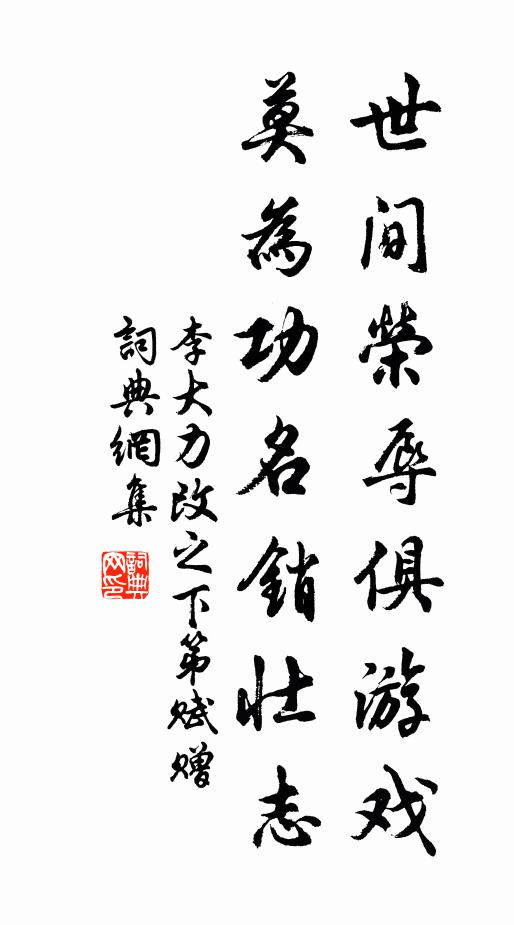 世间榮辱俱游戏
莫為功名銷壮志
李大力改之下第赋赠
詞典網集
詞典网印